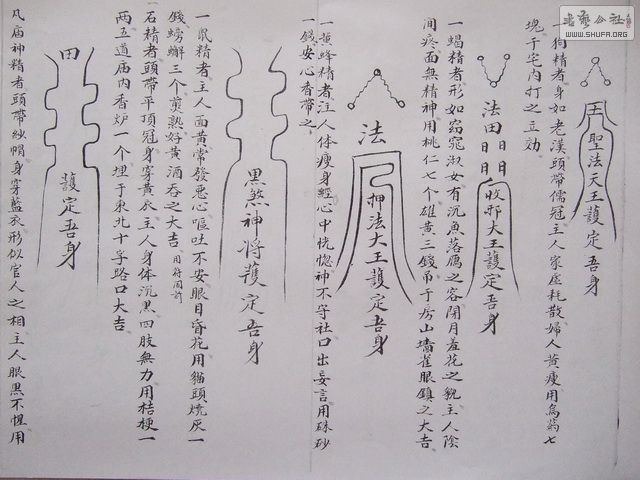 書藝公社
WWW.SHUFA.ORG
一狗精者身如老漢頭帶儒冠主人家虛耗散婦人黃瘦用烏 七
塊于宅內打之立効
聖法天王護定吾身
法田日日日日
收邪大王護定吾身
一蝎精者形如窈窕淑女有沉魚落鴈之容閉月羞花之貌主人陰
間疼面無精神用桃仁七个雄黃三錢吊于房山墻雀眼鎮之大吉
法
押法大王護定吾身
一黃蜂精者注人体瘦身輕心中恍惚神不守社口出妄言用硃砂
一錢安心香帶之
黑煞神将護定吾身
一鼠精者主人面黃常發惡心嘔吐不安眼目昏花用貓頭燒灰一
錢螃蠏三个煎熟好黃酒吞之大吉用符同前
一石精者頭帶平頂冠身穿黃衣主人身体沉黑四肢無力用桔梗一
両五道庙內香炉一个埋于東北十字路口大吉
田
護定吾身
凡庙神精者頭帶紗帽身穿藍衣形似官人之相主人眼黑不惺用